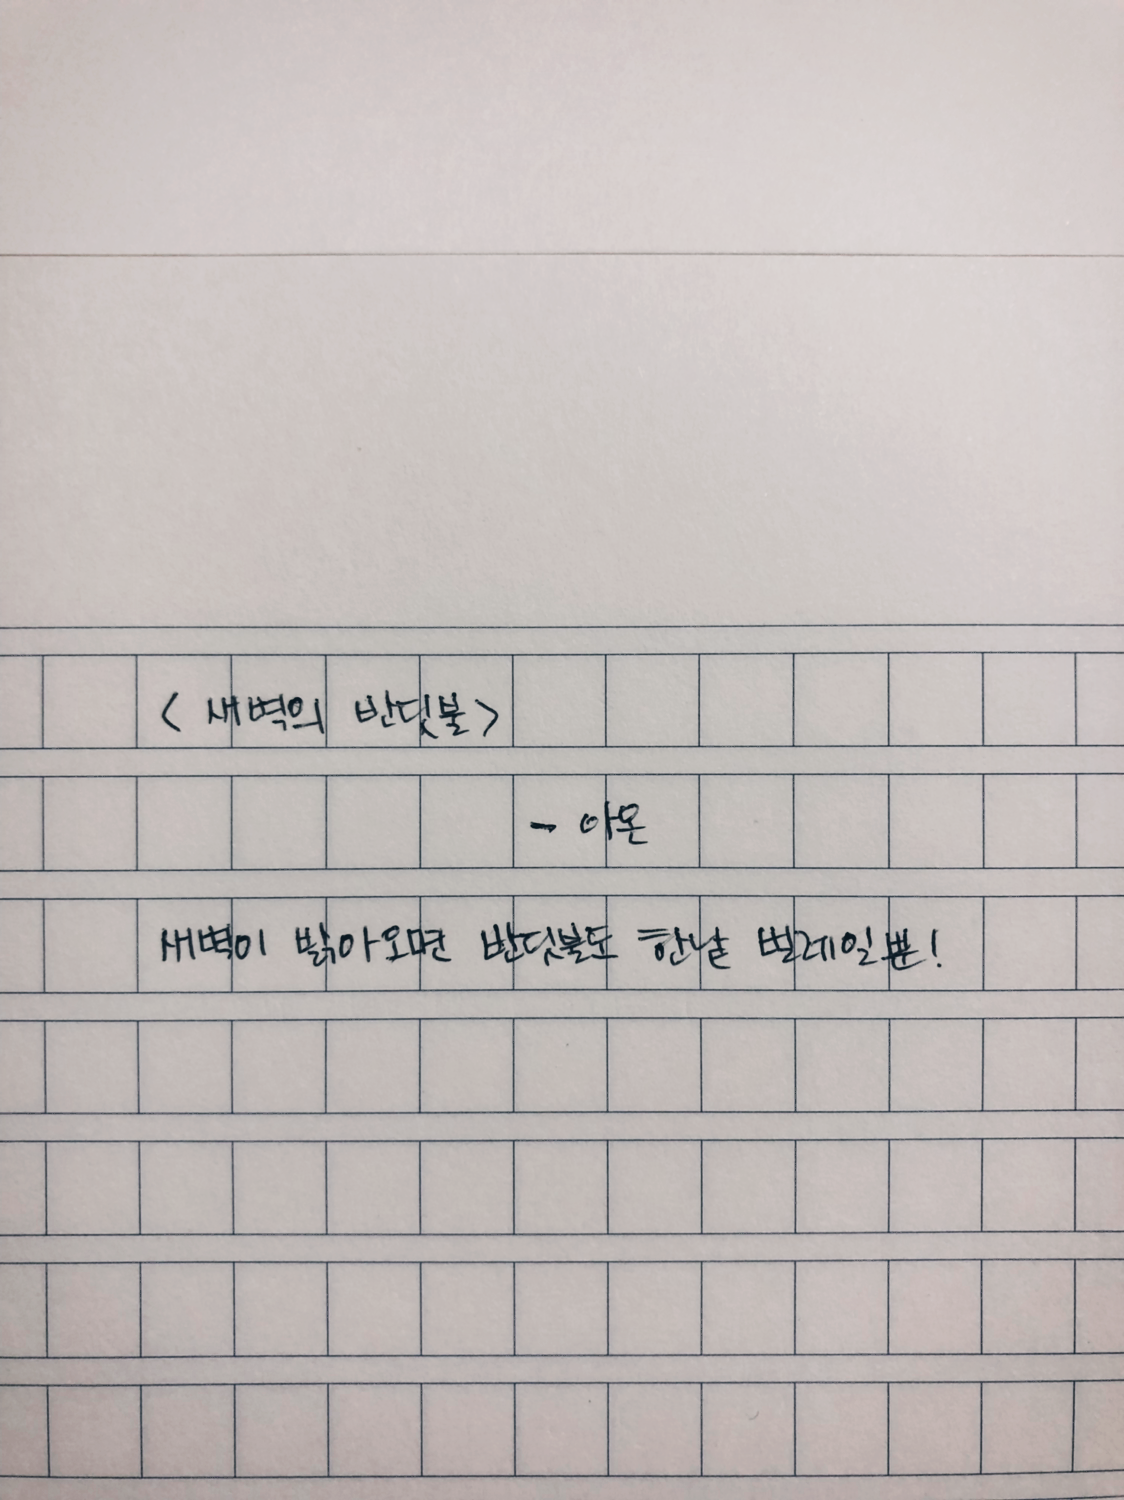 < 새벽의 반딧불>
- 아온
새벽이 밝아오면 반딧불도 한낱 벌레일뿐!